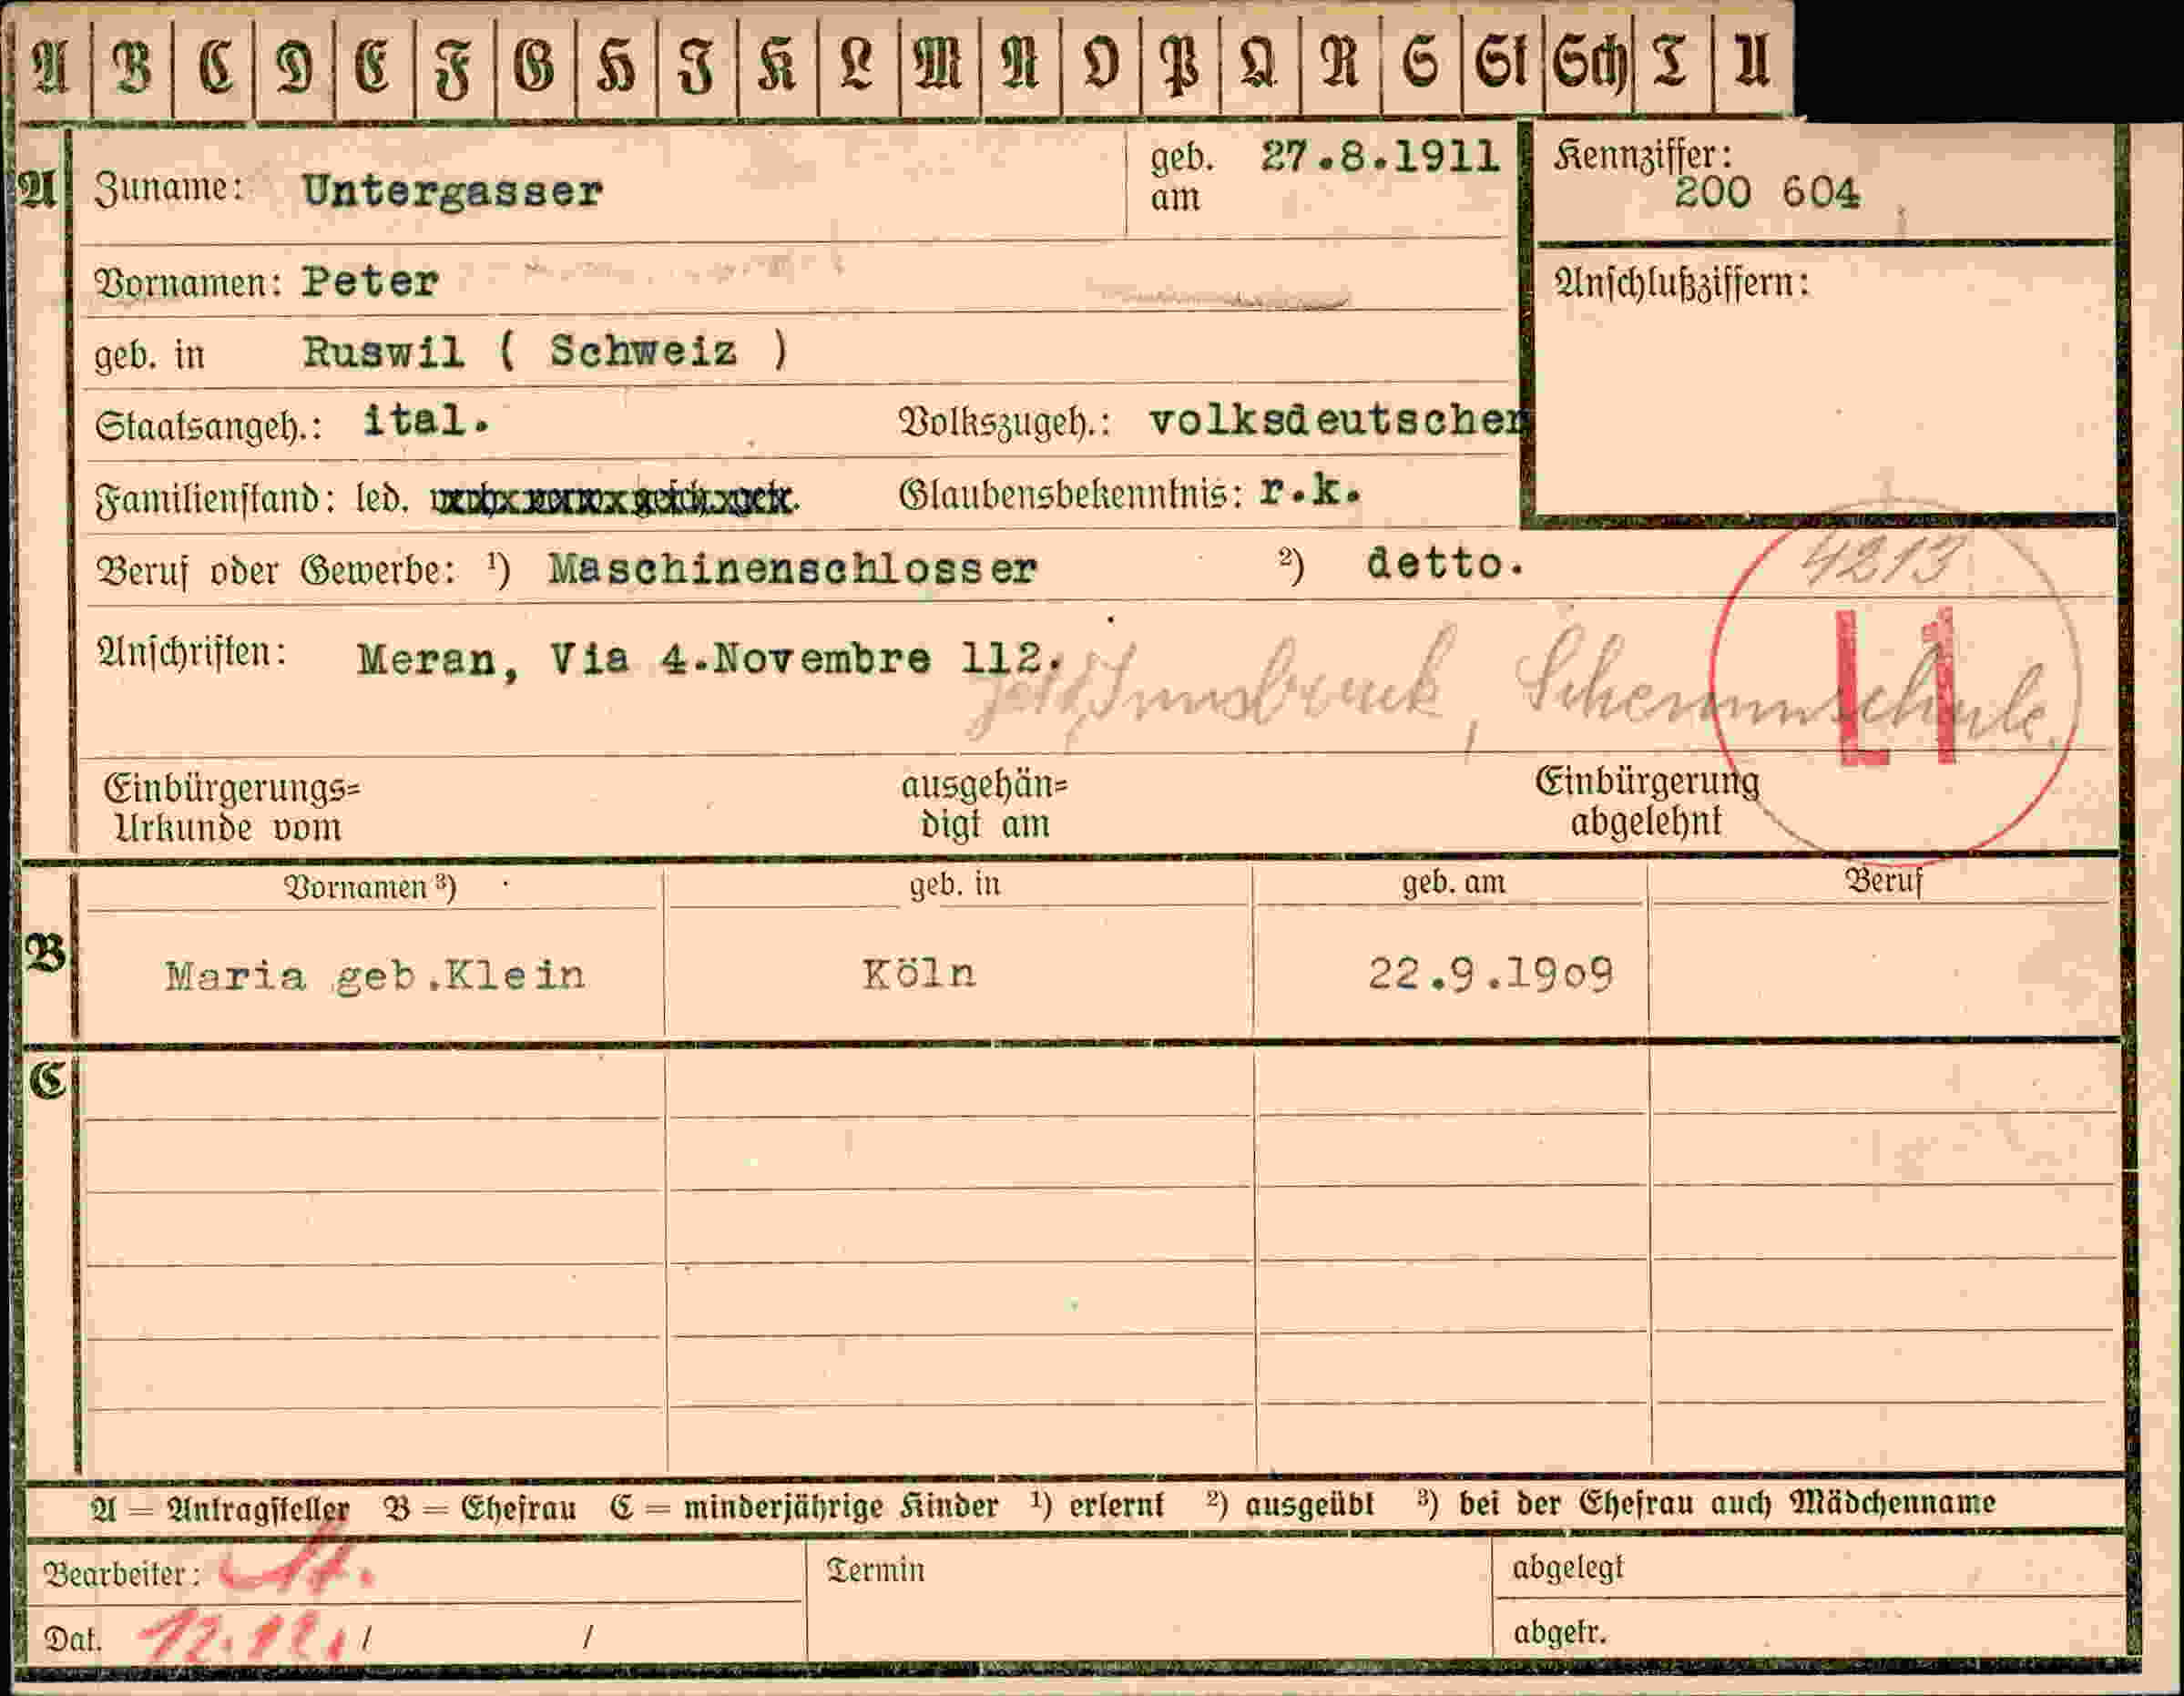 A B C D E F G H I K L M N O P Q R S St Sch T U
A Zuname: Untergasser geb. am 27.8.1911 Kennziffer: 200 604
Vornamen: Peter Anschlußziffern:
geb. in Ruswil ( Schweiz )
Staatsangeh.: ital. Volkszugeh.: volksdeutscher
Familienstand: led. Glaubensbekenntnis: r.k.
Beruf oder Gewerbe: ¹) Maschinenschlosser ²) detto.
4213
L1
Anschriften: Meran, Via 4.Novembre 112.
Innsbruck,
Einbürgerungs= ausgehän= Einbürgerung
Urkunde vom digt am abgelehnt
Vornamen ³) geb. in geb. am Beruf
B Maria geb.Klein Köln 22.9.1909
C
A = Antragsteller B = Ehefrau C = minderjährige Kinder ¹) erlernt ²) ausgeübt ³) bei der Ehefrau auch Mädchenname
Bearbeiter: Termin abgelegt
Dat. 12.12. / / abgetr.